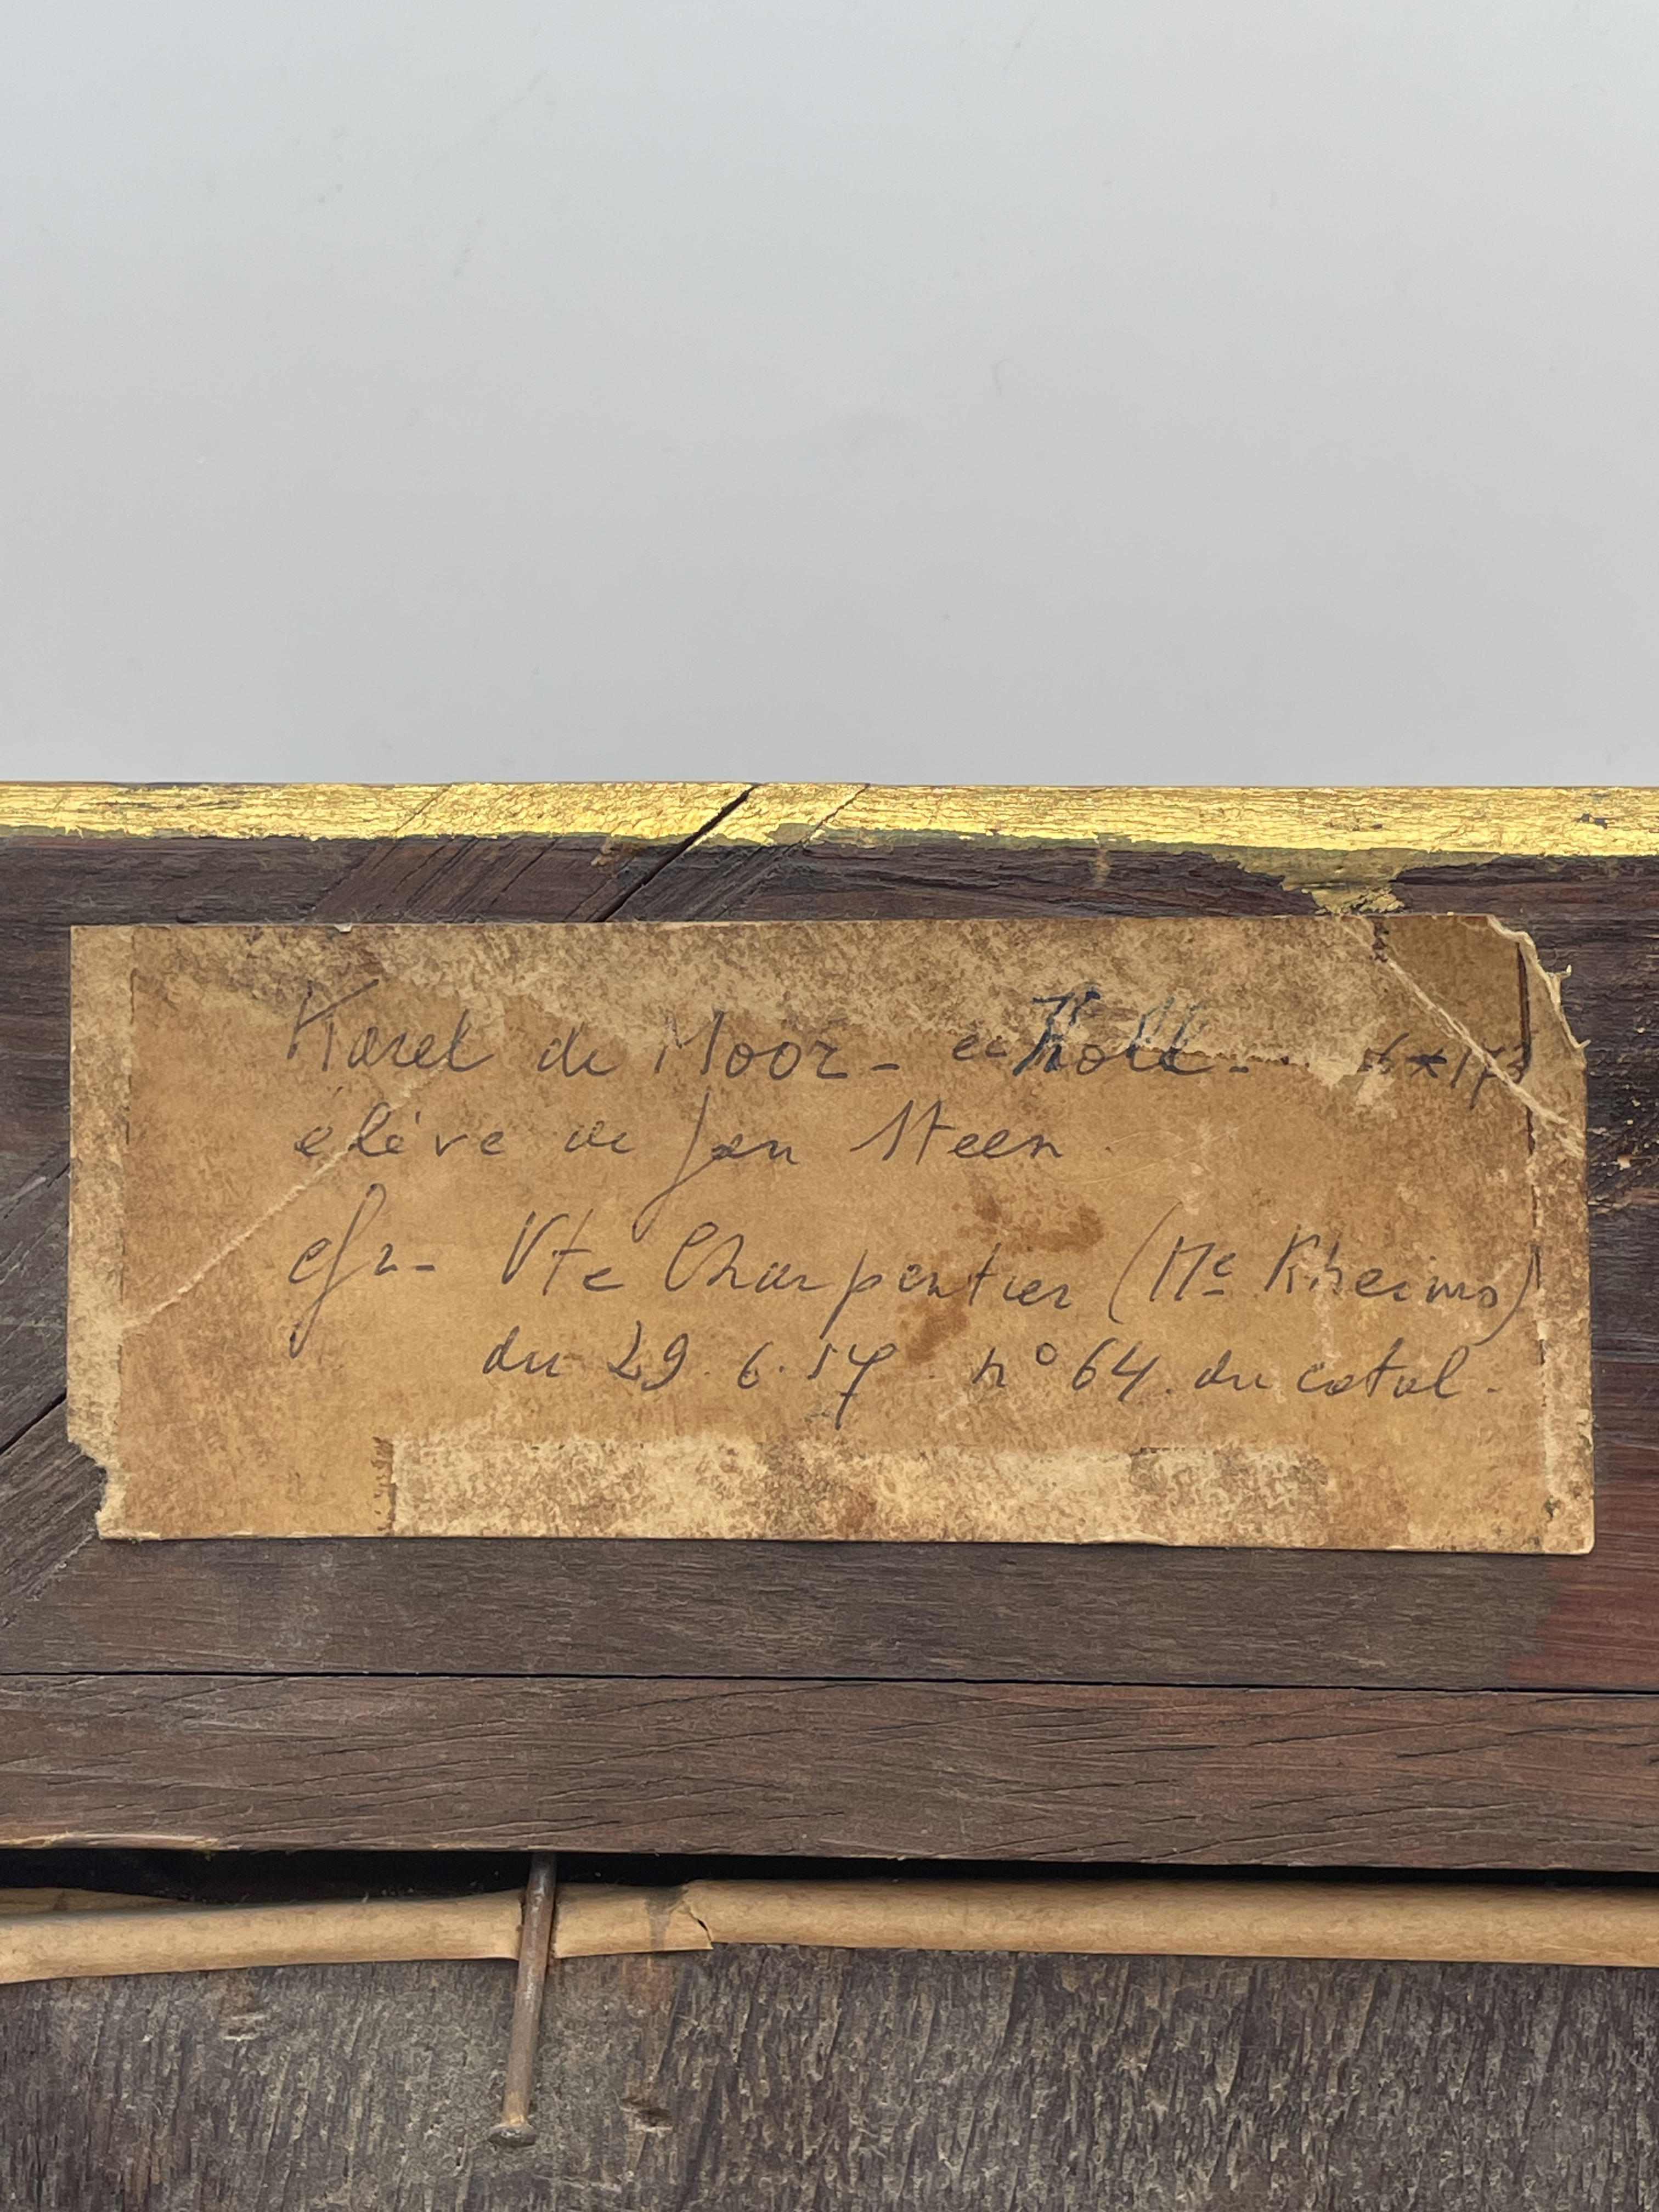 Karel de Moor - ec Holl.
élève de Jan Steen
cfr- Vte Charpentier (Me Rheims)
du 29.6.57. n° 64. du catal.